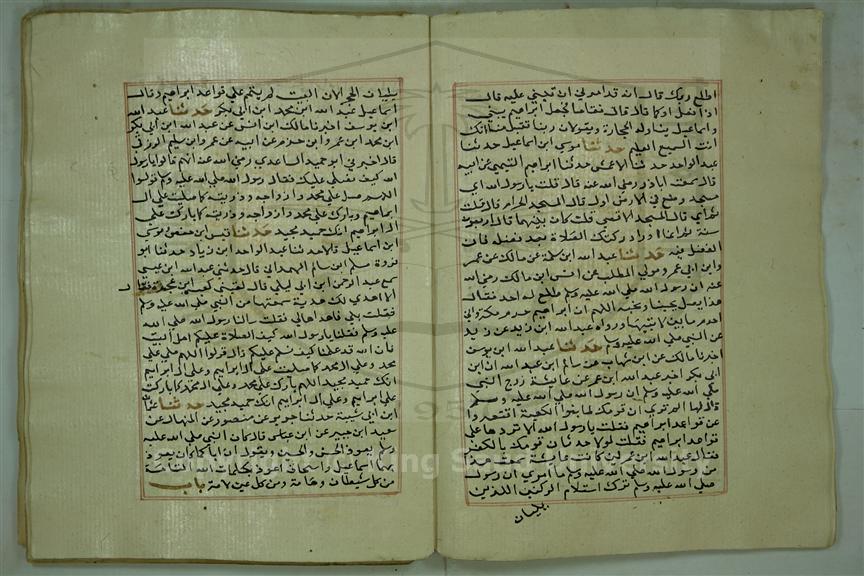 اطلع ربك قال انه قد امرني ان تعينني عليه قال
اذا افعل او كما قال قال فقاما فجعل ابراهيم يبني
واسماعيل يناوله الحجارة ويقولان ربنا تقبل منا انك
انت السميع العليم حدثنا موسى ابن اسماعيل حدثنا
عبد الواحد حدثنا الاعمش حدثنا ابراهيم التيمي عن ابيه
قال سمعت ابا ذر رضي الله عنه قال قلت يا رسول الله اي
مسجد وضع في الارض اول قال المسجد الحرام قال قلت
ثم اي قال المسجد الاقصى قلت كم كان بينهما قال اربعون
سنة ثم اينما ادركتك الصلاة بعد فصله فان
الفضل فيه حدثنا عبد الله ابن مسلمة عن مالك عن عمرو
ابن ابي عمرو مولى المطلب عن انس ابن مالك رضي الله
عنه ان رسول الله صلى الله عليه وسلم طلع له احد فقال
هذا جبل يحبنا ونحبه اللهم ان ابراهيم حرم مكة واني
احرم ما بين لابتيها ورواه عبد الله ابن زيد
عن النبي صلى الله عليه وسلم حدثنا عبد الله ابن يوسف
اخبرنا مالك عن ابن شهاب عن سالم ابن عبد الله ان ابن
ابي بكر اخبر عبد الله ابن عمر عن عائشة زوج النبي
صلى الله عليه وسلم ان رسول الله صلى الله عليه وسلم
قال لها الم تري ان قومك لما بنوا الكعبة اقتصروا
عن قواعد ابراهيم فقلت يا رسول الله الا تردها على
قواعد ابراهيم فقال لولا حدثان قومك بالكفر
فقال عبد الله ابن عمر لئن كانت عائشة سمعت هذا
من رسول الله صلى الله عليه وسلم ما ارى ان رسول
الله صلى الله عليه وسلم ترك استلام الركنين اللذين
يليان
يليان الحجر الا ان البيت لم يتمم على قواعد ابراهيم وقال
اسماعيل عبد الله ابن محمد ابن ابي بكر حدثنا عبد الله
ابن يوسف اخبرنا مالك ابن انس عن عبد الله ابن ابي بكر
ابن محمد ابن عمرو ابن حزم عن ابيه عن عمرو ابن سليم الزرقي
قال اخبرني ابو حميد الساعدي رضي الله عنه انهم قالوا يا رسول
الله كيف نصلي عليك فقال رسول الله صلى الله عليه وسلم قولوا
اللهم صل على محمد وازواجه وذريته كما صليت على ال
ابراهيم وبارك على محمد وازواجه وذريته كما باركت على
ال ابراهيم انك حميد مجيد حدثنا قيس ابن حفص وموسى
ابن اسماعيل قالا حدثنا عبد الواحد ابن زياد حدثنا ابو
فروة مسلم ابن سالم الهمداني قال حدثني عبد الله ابن عيسى
سمع عبد الرحمن ابن ابي ليلى قال لقيني كعب ابن عجرة فقال
الا اهدي لك هدية سمعتها من النبي صلى الله عليه وسلم
فقلت بلى فاهدها لي فقلت سالنا رسول الله صلى الله
عليه وسلم فقلنا يا رسول الله كيف الصلاة عليكم اهل البيت
فان الله قد علمنا كيف نسلم عليكم قال قولوا اللهم صل على
محمد وعلى ال محمد كما صليت على ابراهيم وعلى ال ابراهيم
انك حميد مجيد اللهم بارك على محمد وعلى ال محمد كما باركت
على ابراهيم وعلى ال ابراهيم انك حميد مجيد حدثنا عثمان
ابن ابي شيبة حدثنا جرير عن منصور عن المنهال عن
سعيد ابن جبير عن ابن عباس قال كان النبي صلى الله عليه
وسلم يعوذ الحسن والحسين ويقول ان اباكما كان يعوذ
بهما اسماعيل واسحاق اعوذ بكلمات الله التامة
من كل شيطان وهامة ومن كل عين لامة باب